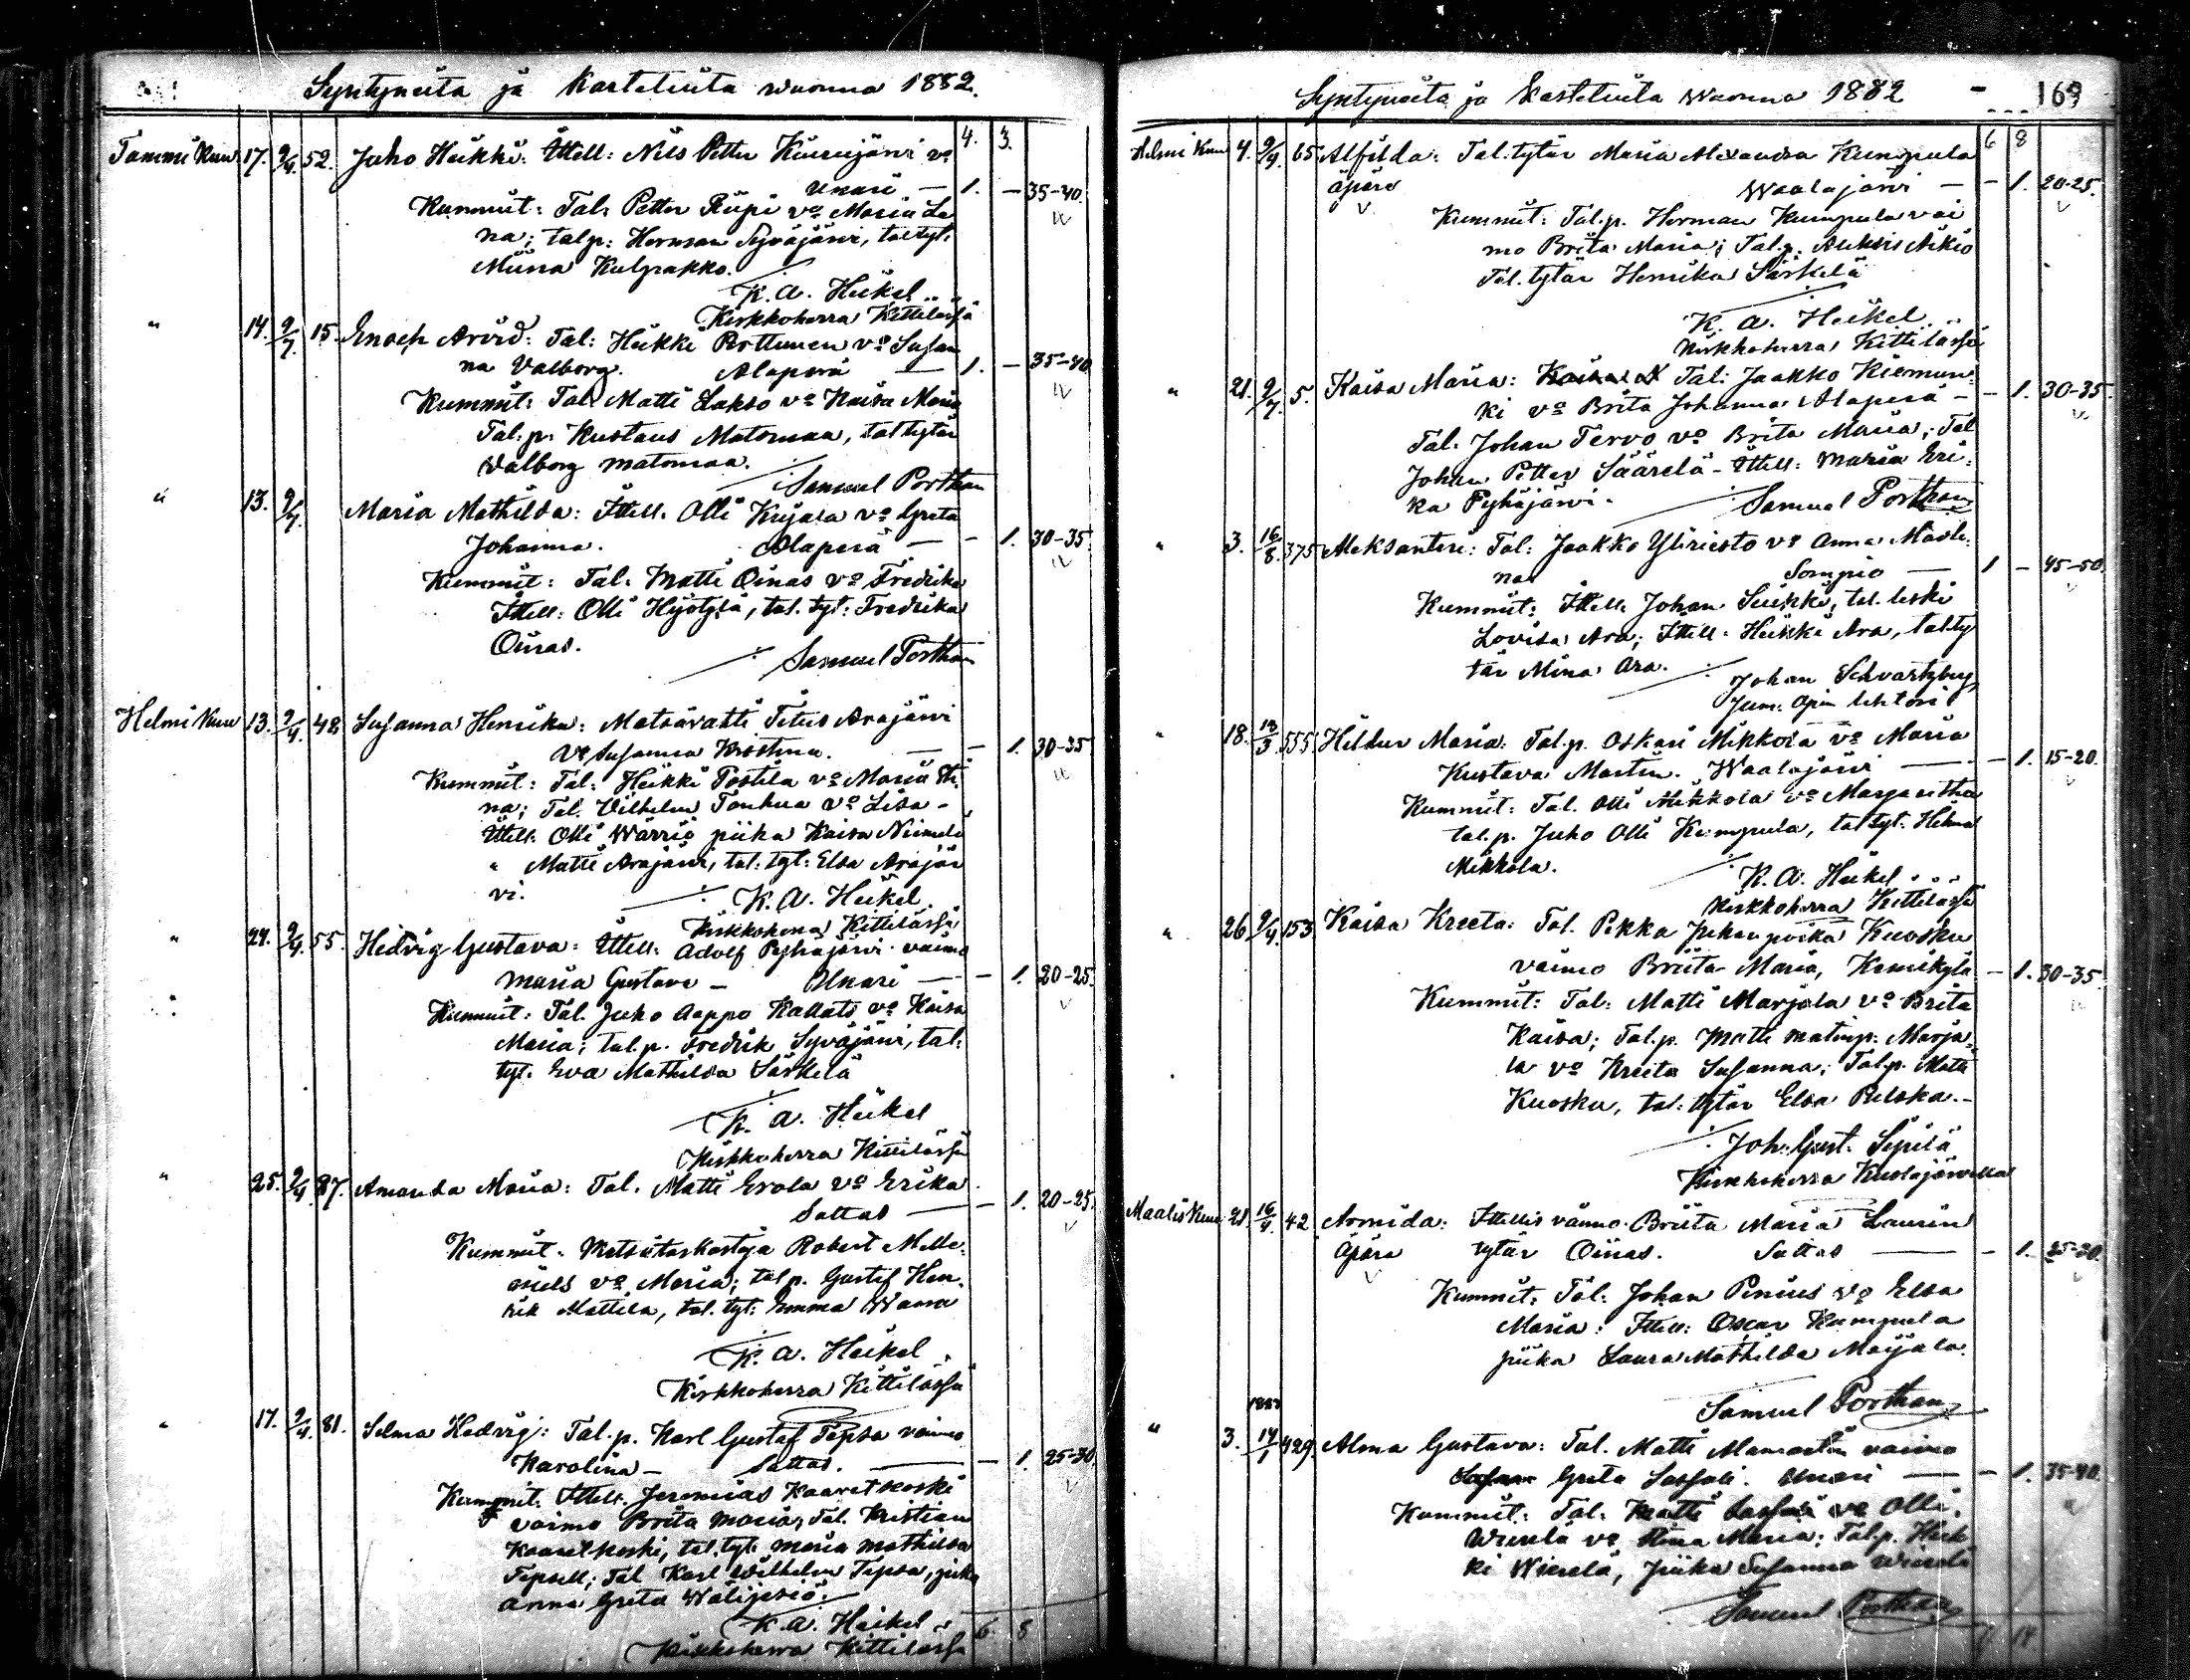 Syntyneitä ja Kastetuita vuonna 1882.
4. 3.
Tammi Kuu 17. 9/4. 52. Juho Heikki: Ittell: Nils Petter Kuusijärvi vo
Unari — 1. — 35-40.
Kummit: Tal: Petter Riipi vo Maria Le
na; talp: Herman Syväjärvi, tal tyt:
Miina Kulpakko.
K. A. Heikel
Kirkkoherra Kittilässä
" 14. 9/7. 15. Enoch Arvid: Tal: Heikki Pottunen vo Susan
na Valborg. Alaperä — 1. — 35-40
Kummit: Tal: Matti Lakso vo Kaisa Maria
Tal: p. Kustaus Matomaa, tal tytär
Valborg Matomaa.
Samuel Porthan
" 13. 9/7. Maria Mathilda: Ittell. Olli Kujala vo Greta
Johanna. Alaperä — - 1. 30-35.
Kummit: Tal. Matti Oinas vo Fredrika
Ittell: Olli Hyötylä, tal. tyt: Fredrika
Oinas.
Samuel Porthan
Helmi Kuu 13. 9/4. 48. Susanna Henrika: Metsävahti Titus Arajärvi
vo Susanna Kristina. — - 1. 30-35
Kummit: Tal: Heikki Postila vo Maria Sti
na; Tal. Vilhelm Tonhua vo Lisa -
Ittell. Olli Wärriö piika Kaisa Niemelä
" Matti Arajärvi, tal: tyt: Elsa Arajär
vi.
K. A. Heikel.
Kirkkoherra Kittilässä
" 24. 9/4. 55. Hedvig Gustava: Ittell: Adolf Pyhäjärvi vaimo
Maria Gustava - Unari — - 1. 20-25.
Kummit: Tal. Juho Aappo Kallats vo Kaisa
Maria; tal. p. Fredrik Syväjärvi, tal:
tyt. Eva Mathilda Särkelä
K. A. Heikel
Kirkkoherra Kittilässä
" 25. 9/4. 87. Amanda Maria: Tal. Matti Erola vo Erika
Sattas — - 1. 20-25.
Kummit: Metsätaskastaja Robert Melle:
niels vo Maria; tal p. Gustaf Hen.
rik Mattila, tal. tyt: Emma Waara
K. A. Heikel
Kirkkoherra Kittilässä
" 17. 9/4. 81. Selma Hedvig: Tal. p. Karl Gustaf Tepsa vaimo
Karolina - Sattas. — - 1. 25-30.
Kummit. Ittell. Jeremias Kaaretkoski
vaimo Brita Maria, Tal. Kristian
Kaaretkoski, tal. tyt. Maria Mathilda
Tepsell; Tal Karl Wilhelm Tepsa, piika
Anna Greta Wälijesiö.
K. A. Heikel 6. 8
Kirkkoherra Kittilässä
Syntyneitä ja Kastetuita Wuonna 1882 - 169
6 8
Helmi Kuu 4. 9/4. 65. Alfilda: Tal. tytär Maria Alexandra Kumpula
äpärä Waalajärvi — - 1. 20-25.
Kummit: Tal. p. Herman Kumpula vai
mo Brita Maria; Tal. p. Aleksis Äikiö
Tal. tytär Henrika Särkelä
K. A. Heikel.
Kirkkoherra Kittilässä
" 21. 9/7. 5. Kaisa Maria: Tal: Jaakko Kiemun:
ki vo Brita Johanna Alaperä - - 1. 30-35.
Tal. Johan Tervo vo Brita Maria; Tal
Johan Petter Säärelä - Ittell: Maria Eri:
ka Pyhäjärvi.
Samuel Porthan
" 3. 16/8. 375 Aleksanteri: Tal: Jaakko Yliriesto vo Anna Made
na Sompio — 1 - 45-50.
Kummit: Ittell. Johan Seikki, tal. leski
Lovisa Ara; Ittell: Heikki Ara, tal. ty
tär Mina Ara.
Johan Schvartzberg
Jum. Opin lehtori
" 18. 13/3. 555 Hildur Maria: Tal. p. Oskari Mikkola vo Maria
Kustava Martin. Waalajärvi — - 1. 15-20.
Kummit: Tal. Olli Mikkola vo Margaretha
tal. p. Juho Olli Kumpula, tal tyt. Hilma
Mikkola.
K. A. Heikel
Kirkkoherra Kittilässä
" 26 9/4. 153 Kaisa Kreeta: Tal. Pekka Juhan poika Kuosku
vaimo Briita Maria, Kemikylä - 1. 30-35.
Kummit: Tal: Matti Marjala vo Brita
Kaisa; Tal. p. Matti Matinp. Marja
la vo Kreeta Susanna; Tal. p. Matti
Kuosku, tal: tytär Elsa Pulska.-
Joh. Gust. Sipilä
Kirkkoherra Kuolajärvella
Maalis Kuu 21. 16/4. 42 Armida: Ittellis vaimo Briita Maria Laurin
äpärä tytär Oinas. Sattas — - 1. 25-30.
Kummit: Tal: Johan Pinius vo Elsa
Maria: Ittell: Oscar Kumpula
piika Laura Mathilda Maijala.
Samuel Porthan
1883
" 3. 14/1 429. Alma Gustava: Tal. Matti Mamartin vaimo
Greta Sassali. Unari — - 1. 35-40.
Kummit: Tal: Matti Sassali vo Olli
Wierelä vo Stina Maria: Talp. Heik
ki Wierelä, piika Susanna Wierelä
Samuel Porthan
14